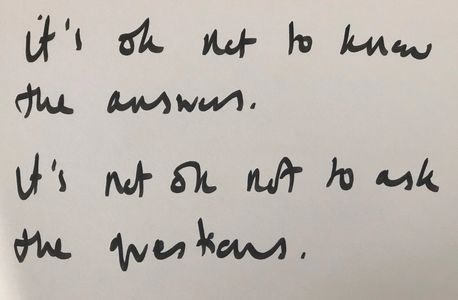 it's ok not to know
the answers.
It's not ok not to ask
the questions.